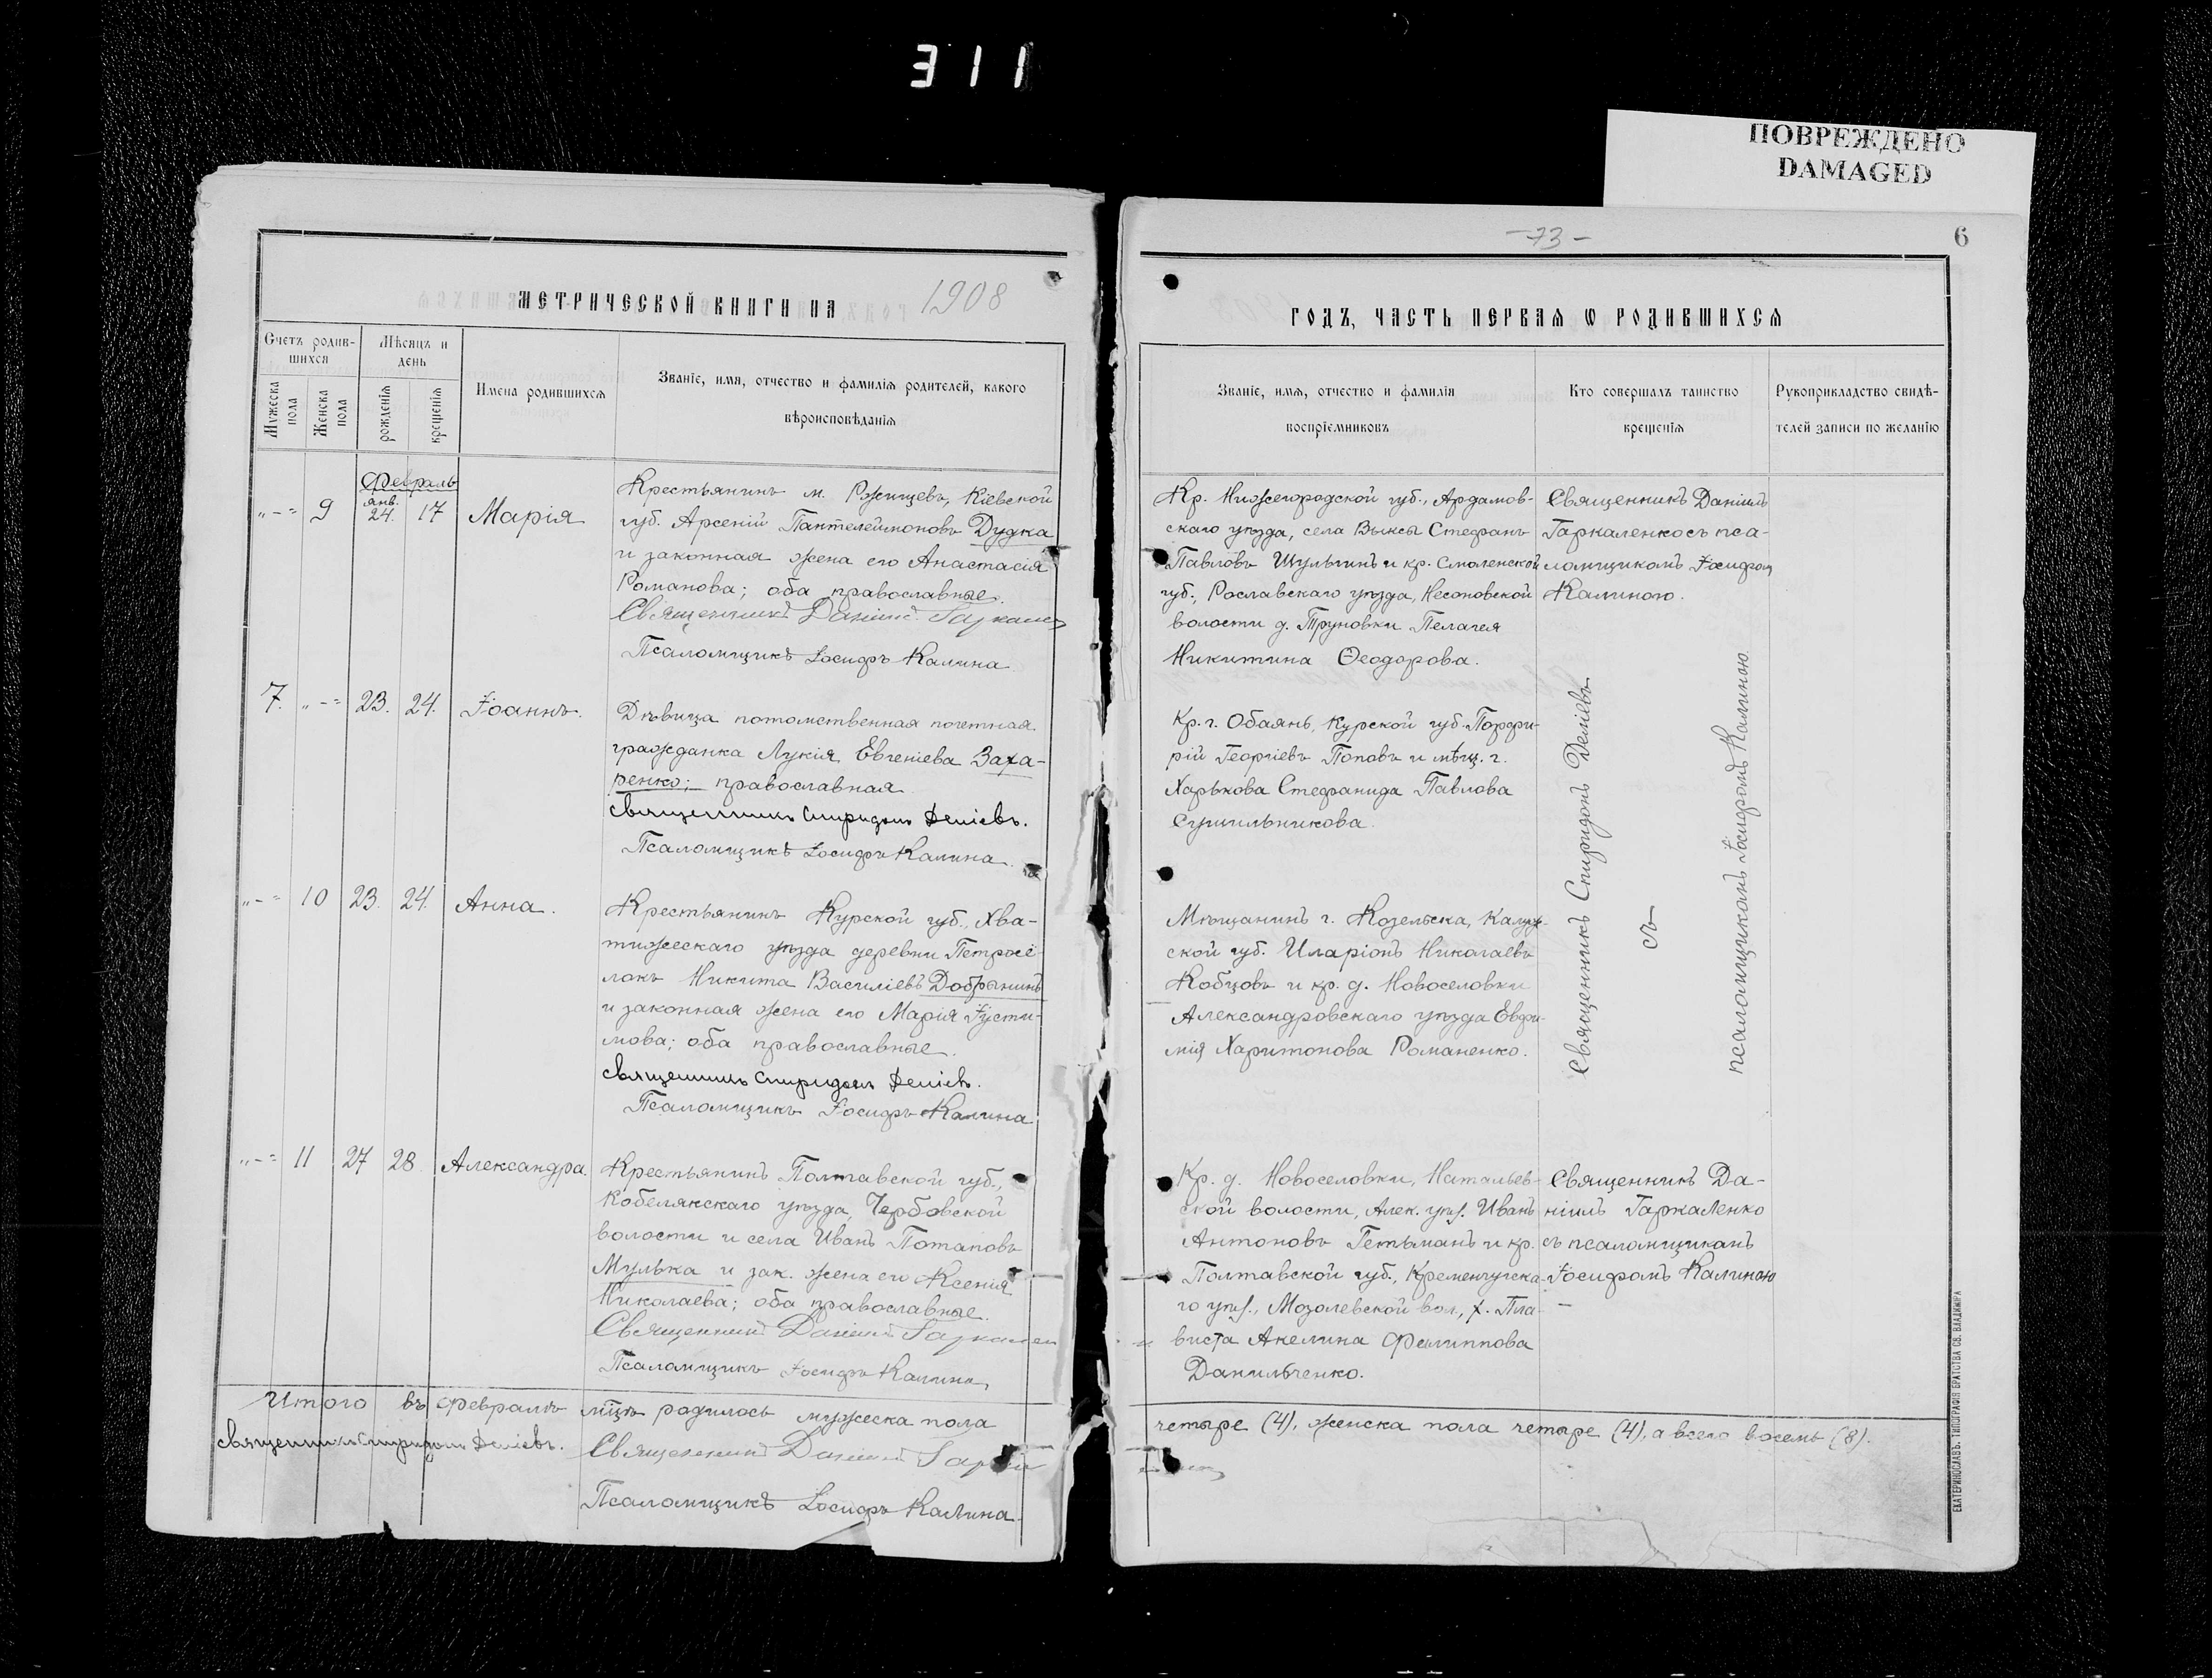 311
ПОВРЕЖДЕНО
DAMAGED
МЕТРИЧЕСКОЙ КНИГИ НА 1908
Счетъ родив-
шихся
Мѣсяцъ и
день
Мужеска
пола
Женска
пола
рожденія
крещенія
Имена родившихся
Званіе, имя, отчество и фамилія родителей, какого
вѣроисповѣданія
Февраль
"-" 9 янв. 24. 17 Марія
Крестьянинъ м. Ржищевъ, Кіевской
губ. Арсеній Пантелеимоновъ Дудка
и законная жена его Анастасія
Романова; оба православные.
Священникъ Даніилъ
Псаломщикъ Іосифъ Калина
7. "-" 23. 24. Іоаннъ.
Дѣвица потомственная почетная
гражданка Лукія Евгеніева Заха-
ренко; православная
Священникъ Спиридонъ Деліевъ.
Псаломщикъ Іосифъ Калина.
"-" 10 23. 24. Анна.
Крестьянинъ Курской губ., Хва-
тижескаго уѣзда деревни Петросе-
локъ Никита Василіевъ Добрынинъ
и законная жена его Марія Іусти-
нова; оба православные.
Священникъ Спиридонъ Деліевъ.
Псаломщикъ Іосифъ Калина
"-" 11 27 28. Александра.
Крестьянинъ Полтавской губ.,
Кобелякскаго уѣзда, Чербовской
волости и села Иванъ Потаповъ
Мулька и зак. жена его Ксенія
Николаева; оба православные.
Священникъ Даніилъ
Псаломщикъ Іосифъ Калина
Итого въ Февралѣ мцѣ родилось мужеска пола
Священникъ Спиридонъ Деліевъ.
Священникъ Даніилъ
Псаломщикъ Іосифъ Калина.
-73-
6
ГОДЪ, ЧАСТЬ ПЕРВАЯ Ѡ РОДИВШИХСЯ
Званіе, имя, отчество и фамилія
воспріемниковъ
Кто совершалъ таинство
крещенія
Рукоприкладство свидѣ-
телей записи по желанію
Кр. Нижегородской губ., Ардатов-
скаго уѣзда, села Выксы Стефанъ
Павловъ Шульгинъ и кр. Смоленской
губ., Рославскаго уѣзда, Несоновской
волости д. Труновки Пелагея
Никитина Ѳеодорова.
Священникъ Даніилъ
Гаркаленко съ пса-
ломщикомъ Іосифом
Калиною.
Кр. г. Обаянь, Курской губ. Порфи-
рій Георгіевъ Поповъ и мѣщ. г.
Харькова Стефанида Павлова
Сушильникова.
Мѣщанинъ г. Козельска, Калуж-
ской губ. Иларіонъ Николаевъ
Кобцовъ и кр. д. Новоселовки
Александровскаго уѣзда Евфи-
мія Харитонова Романенко.
Священникъ Спиридонъ Деліевъ
съ
псаломщикомъ Іосифомъ Калиною
Кр. д. Новоселовки, Натальев-
ской волости, Алек. уѣз. Иванъ
Антоновъ Гетьманъ и кр.
Полтавской губ., Кременчугска-
го уѣз., Мозолевской вол., х. Пла-
виста Акелина Филиппова
Данильченко.
Священникъ Да-
ніилъ Гаркаленко
съ псаломщикомъ
Іосифомъ Калиною
четыре (4), женска пола четыре (4), а всего восемь (8).
ЕКАТЕРИНОСЛАВЪ. ТИПОГРАФІЯ БРАТСТВА СВ. ВЛАДИМІРА